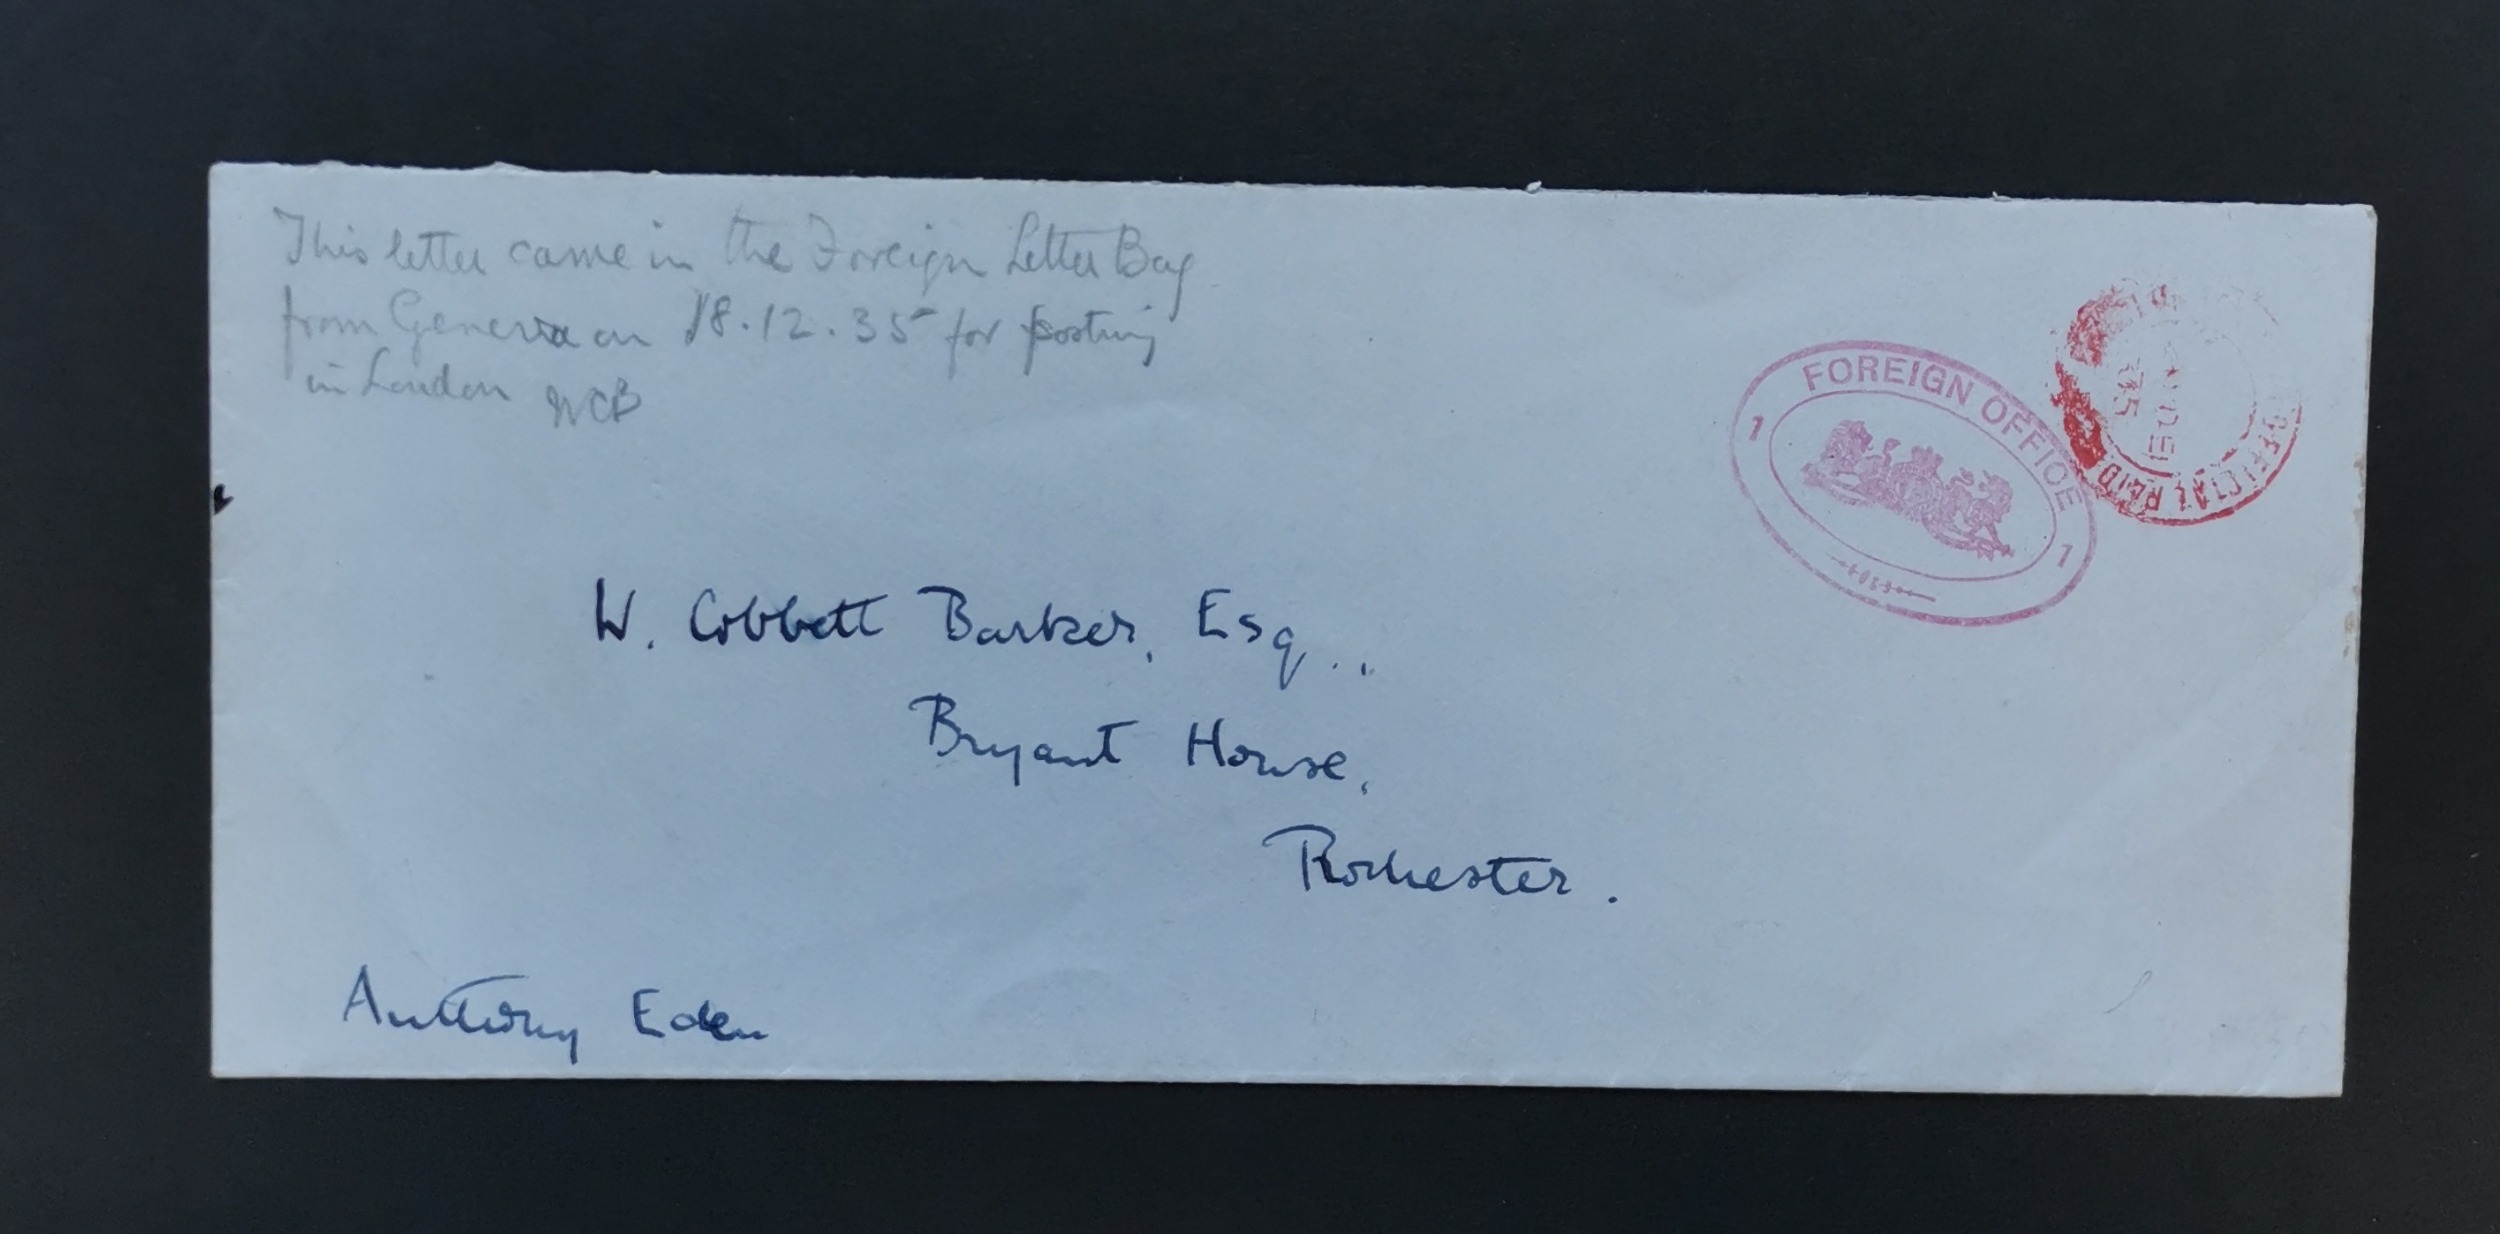 This letter came in the Foreign Letter Bag
from Geneva on 18.12.35 for posting
in London WCB
FOREIGN OFFICE
1 1
OFFICIAL PAID
35
W. Cobbett Barker, Esq.,
Bryant House,
Rochester.
Anthony Eden